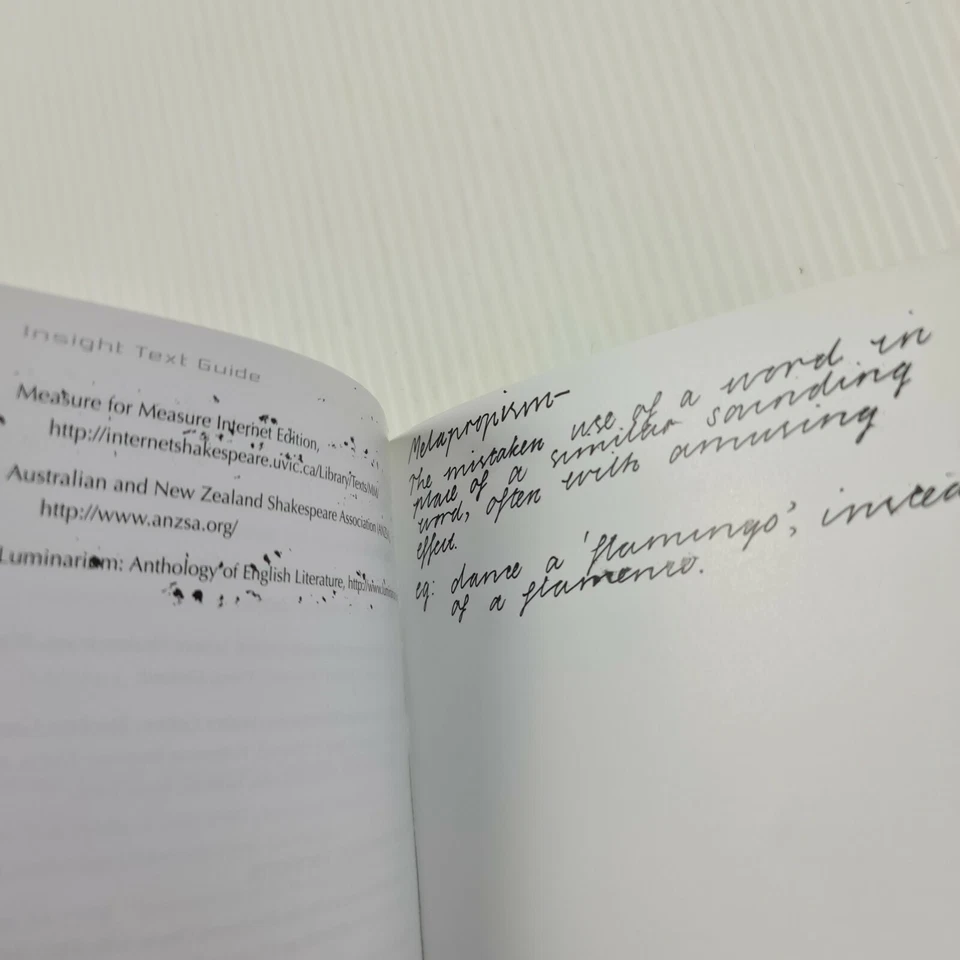 Insight Text Guide
Measure for Measure Internet Edition,
http://internetshakespeare.uvic.ca/Library/Texts/MM/
Australian and New Zealand Shakespeare Association
http://www.anzsa.org/
Luminarium: Anthology of English Literature,
Melapropism-
The mistaken use of a word in
place of a similar sounding
word, often with amusing
effect.
eg: dance a 'flamingo', instead
of a flamenco.